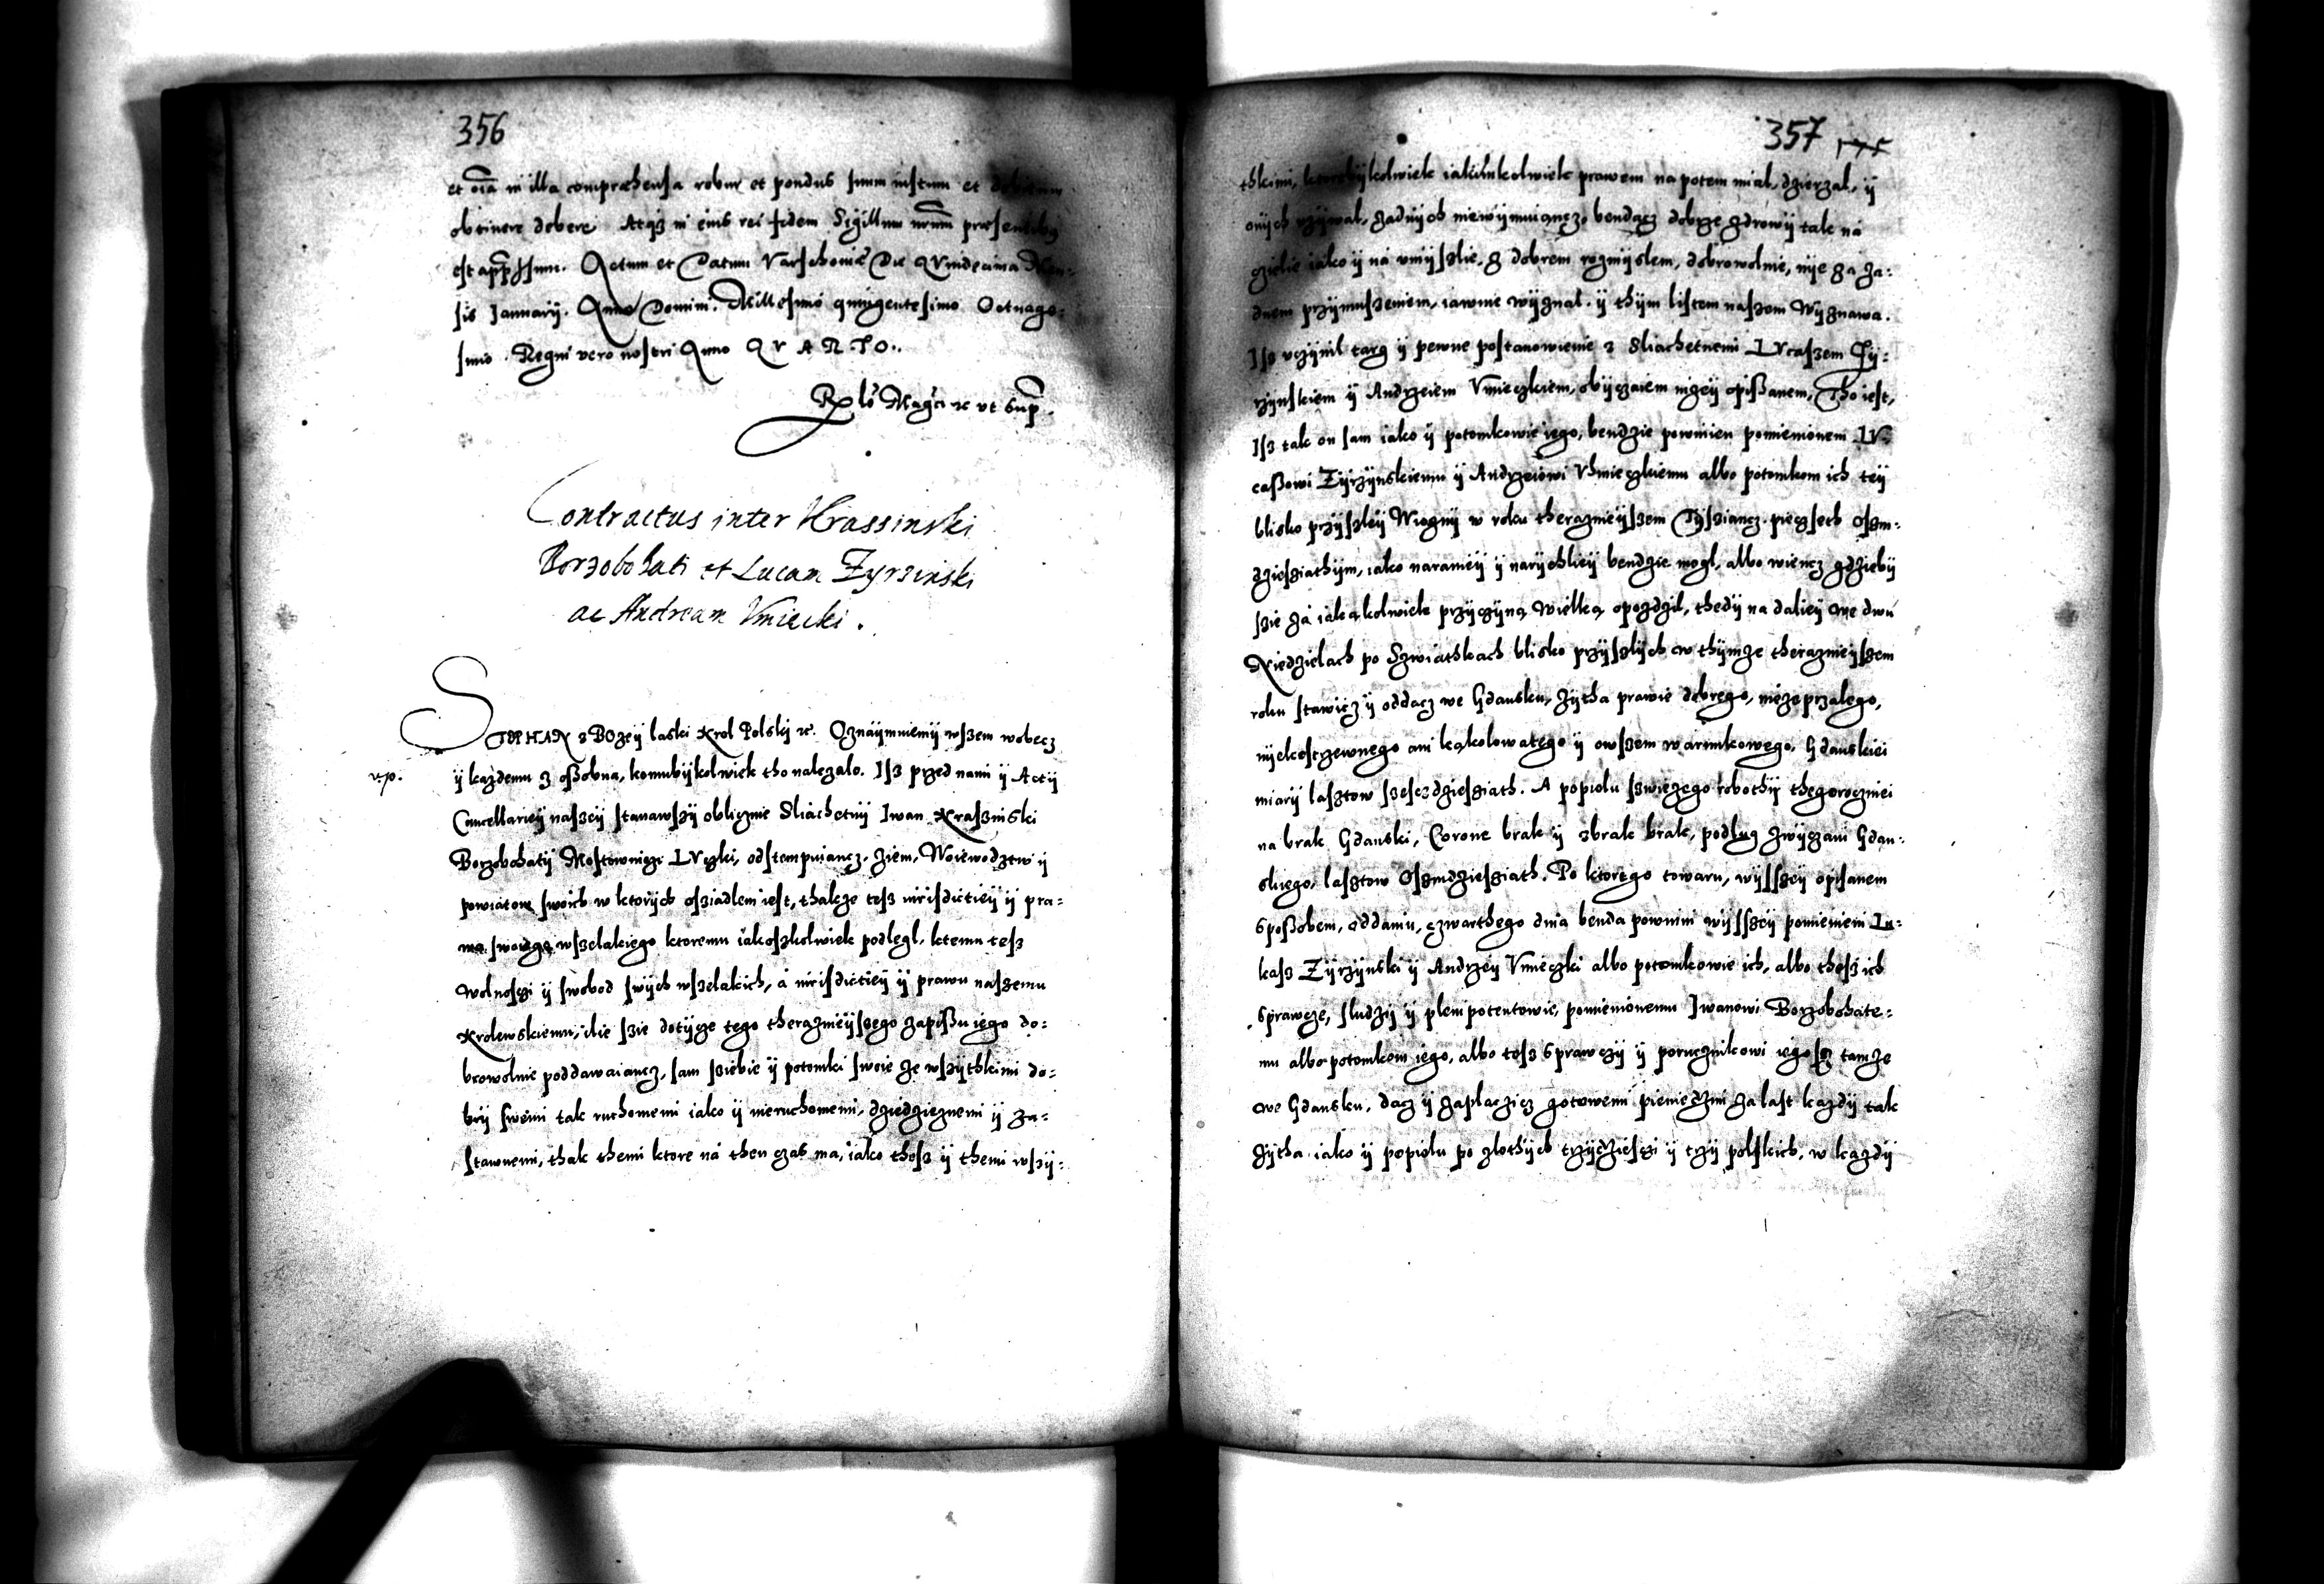 356
et oı̃a in illa compræhensa robur et pondus suum iustum et debitum
obtinere debere. Atqȝ in eius rei fidem Sigillum nrũm præsentibus
est apprẽssum. Actum et Datum Varschoniæ Die Qvindecima Men-
sis Januarij. Anno Domini. Millesimo quingentesimo Octuage-
simo. Regni vero nostri Anno QVARTO.
Rx lõ Magci etc vt Sup̃.
Contractus inter Krassinski
Borzobohati et Lucam Zyrzinski
ac Andream Vmiecki.
STEPHAN z Bozeÿ laski Krol Polskÿ etc. Oznaÿmuiemÿ wszem wobecz
ÿ kazdemu z oßobna, komubÿkolwiek tho nalezalo. Isz przed nami ÿ Actÿ
Cancellarieÿ naszeÿ stanawszÿ oblicznie Sliachetnÿ Iwan Kraszinski
Borzobohatÿ Mostowniczi Lvczki, odstempuiancz, ziem, Woiewodztw ÿ
powiatow swoich w ktorÿch osziadlem iest, thakze tesz iurisdictieÿ ÿ pra-
wa swoiego wszelakiego ktoremu iakoszkolwiek podlegl, ktemu tesz
wolnosczi ÿ swobod swÿch wszelakich, á iurisdictieÿ ÿ prawu naszemu
Krolewskiemu, ilie szie dotÿcze tego therazniéÿszego zapißu iego do-
browolnie poddawaiancz, sam sziebie ÿ potomki swoie ze wszÿthkimi do-
brÿ swemi tak ruchomemi iako ÿ nieruchomemi, dziedzicznemi ÿ za-
stawnemi, thak themi ktore ná then czas ma, iako thesz ÿ themi wszÿ-
357
thkimi, ktorebÿkolwiek iakimkolwiek prawem na potem mial, dzierzal, ÿ
onÿch vzÿwal, zadnÿch niewÿmuiancz, bendacz dobrze zdrowÿ tak ná
czielie iako ÿ ná vmÿszlie, z dobrem rozmÿslem, dobrowolnie, nÿe za za-
dnem przÿmuszeniem, iawnie wÿznal. ÿ thÿm listem naszem Wÿznawa.
Isz vczÿnil targ ÿ pewne postanowienie z Sliachetnemi Lvcaszem Zÿ-
rzÿnskiem ÿ Andrzeiem Vmieczkiem, obÿczaiem nizeÿ opißanem, Tho iest,
Isz tak on sam iako ÿ potomkowie iego, bendzie powinien pomienionem Lv-
caßowi Zÿrzÿnskiemu ÿ Andrzeiowi Vmieczkiemu albo potomkom ich teÿ
blisko przÿszleÿ Wiosnÿ w roku therazniéÿszem Tÿsziancz pieczseth Oszm-
dziesziathÿm, iako naranieÿ ÿ narÿchlieÿ bendzie mogl, albo wiencz gdziebÿ
szie zá iakąkolwiek przÿczÿną wielką opozdzil, thedÿ na dalieÿ we dwu
Niedzielach po Szwiathkach blisko przÿszlÿch w thÿmze therazniéÿszem
roku stawicz ÿ oddacz we Gdansku, zÿtha prawie dobrego, niezeprzalego,
nÿekostrzewnego ani kąkolowatego ÿ owszem warunkowego, Gdanskiei
miarÿ lasztow szesczdziesziath. A popiolu szwiezego robothÿ thegorocznei
na brak Gdanski, Corone brak ÿ zbrak brak, podlug zwÿczaiu Gdan-
skiego, lasztow Oszmdziesziath. Po ktorego towaru, wÿsszeÿ opisanem
sposzobem, oddaniu, czwarthego dnia benda powinni wÿsszeÿ pomienieni Lu-
kasz Zÿrzÿnski ÿ Andrzeÿ Vmieczki albo potomkowie ich, albo thesz ich
sprawcze, sludzÿ ÿ plempotentowie, pomienionemu Iwanowi Borzobohate-
mu albo potomkom iego, albo tesz sprawczÿ ÿ porucznikowi iego tamze
we Gdansku, dacz ÿ zaplaczicz gotowemi pieniedzmi za last kazdÿ tak
zÿtha iako ÿ popiolu po zlothÿch trzÿdziesczi ÿ trzÿ polskich, w kazdÿ